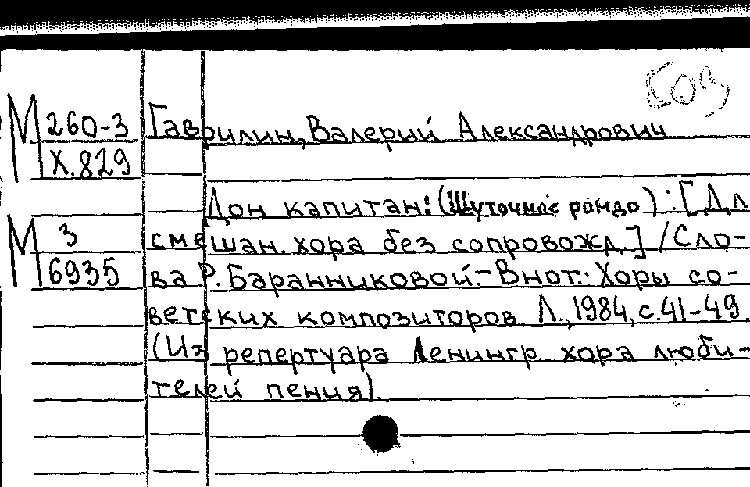 СОЧ
М 260-3 Гаврилин, Валерий Александрович
Х.829
Дон капитан: (Шуточное рондо) : [Дл
М 3 смешан. хора без сопровожд.] / Сло-
6935 ва Р. Баранниковой.- В нот.: Хоры со-
ветских композиторов Л., 1984, с. 41-49
(Из репертуара Ленингр. хора люби-
телей пения)